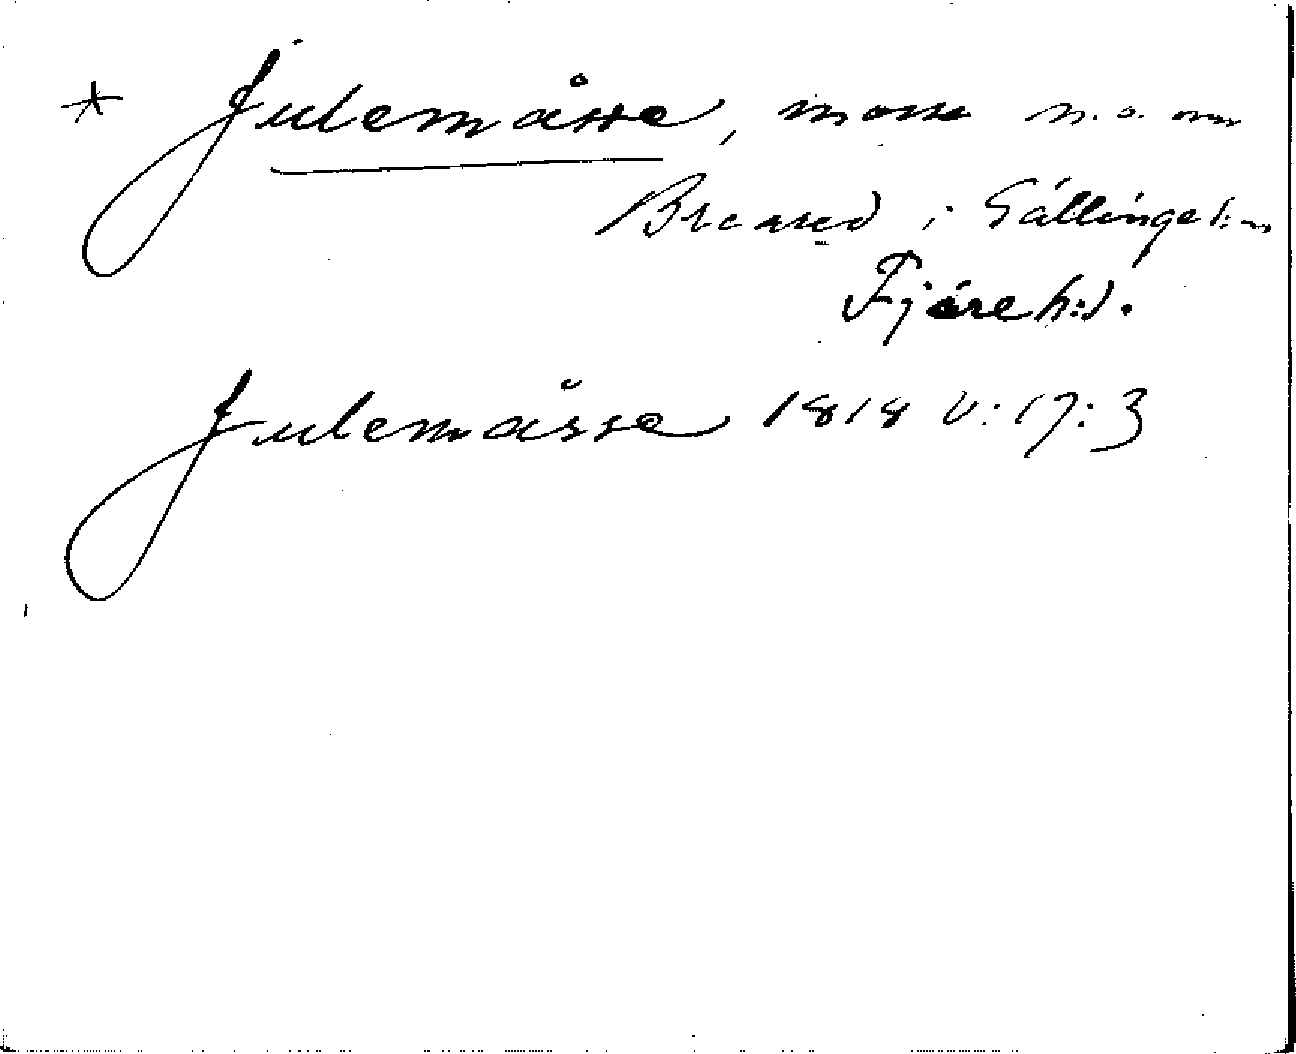 * Julemåsse, mosse n.o. om
i Gällinge s:n
Fjäre h:d.
Julemåsse 1818 V:17:3